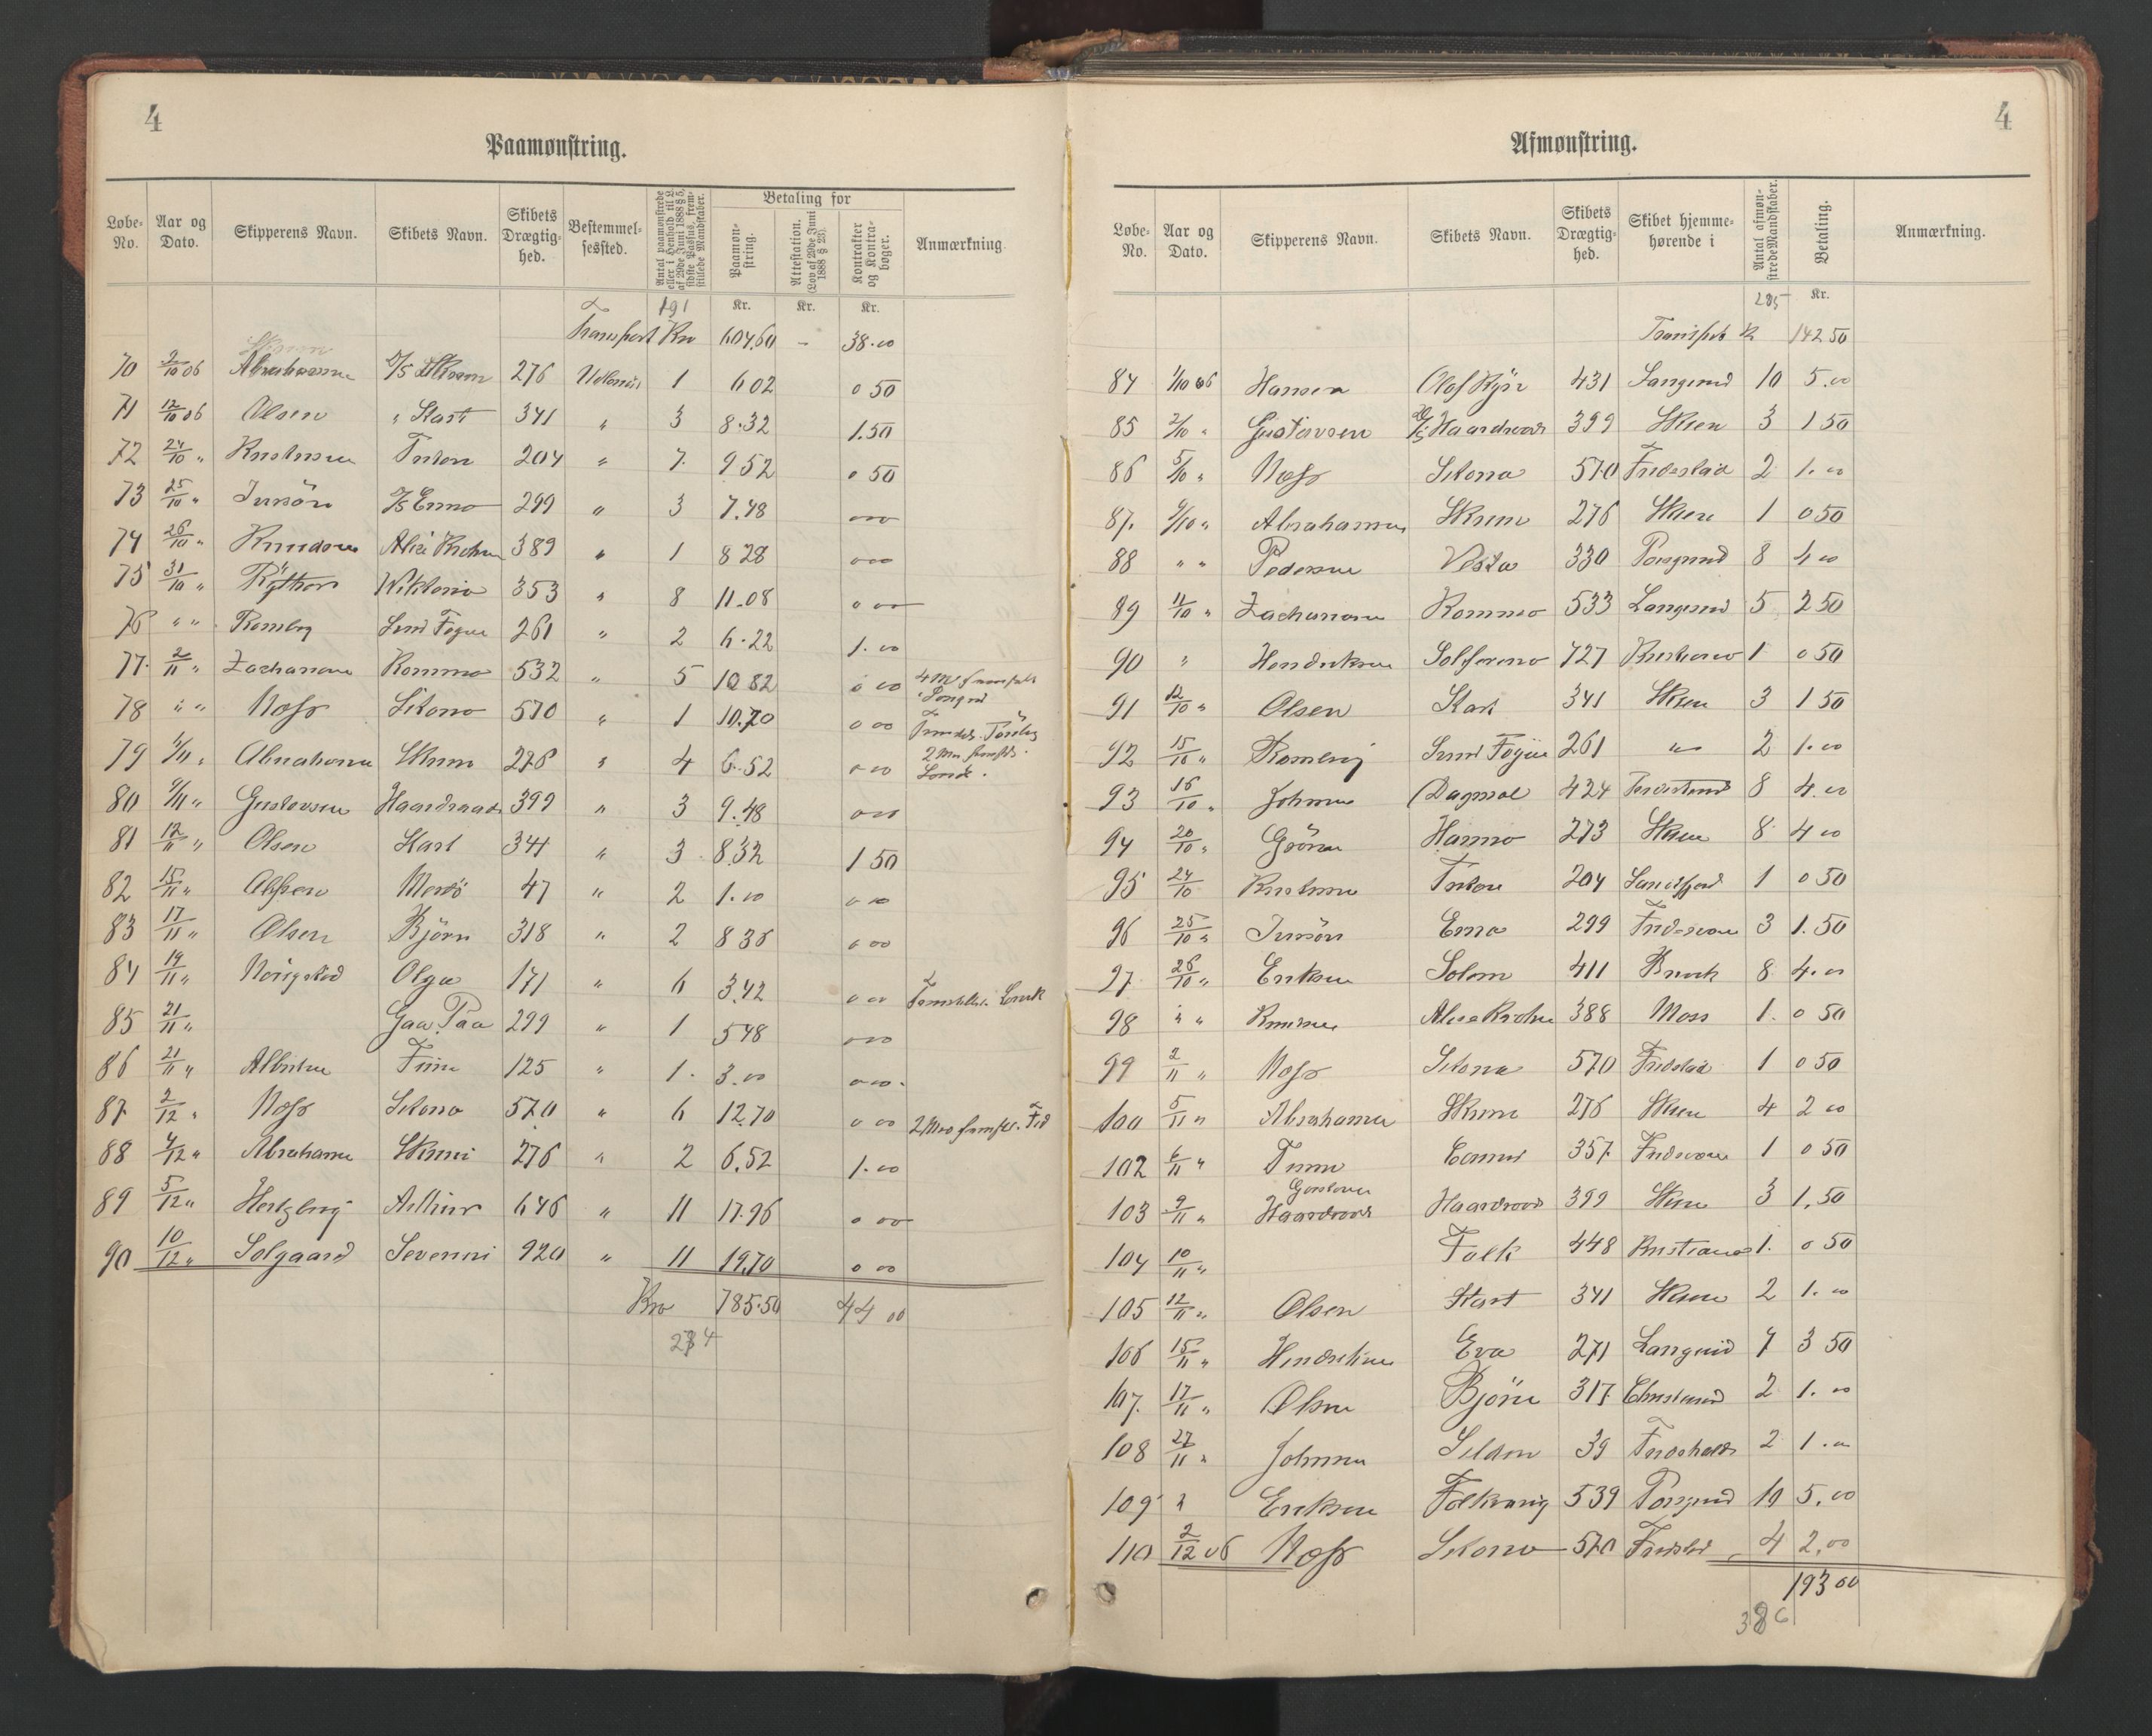 4
Paamønstring.
Løbe-No. Aar og Dato. Skipperens Navn. Skibets Navn. Skibets Drægtig-hed. Bestemmel-sessted. Antal paamønstrede eller i Henhold til L. af 29de Juni 1888 § 5, sidste Passus, frem-stillede Mandskaber. Betaling for Paamøn-string. Attestation. (Lov af 29de Juni 1888 § 23). Kontrakter og Kontra-bøger. Anmærkning.
191 Kr. Kr. Kr.
Transport Kro 604,60 – 38.00
70 9/10 06 Abrahamsen D/S Skrim 276 Udlandet 1 602 0 50
71 12/10 06 Olsen " Start 341 " 3 8.32 1.50
72 24/10 " Kristensen Triton 204 " 7. 9 52 0 50
73 25/10 " Jursön Erna 299 " 3 7.48 000
74 26/10 " Knudsen Alice Krohn 389 " 1 8 28 000
75 31/10 " Rÿtther Viktoria 353 " 8 11.08 0 00
76 " " Romberg Svend Foyn 261 " 2 6.22 1.00
77. 2/11 " Zachariasen Romma 532 " 5 10 82 0 00 4 M fremst. i Porsgrd
78 " " Moss Sitona 570 " 1 10.70 0 00
79 5/11 " Abrahamsen Skrim 276 " 4 6.52 0 00
80 9/11 " Gustavsen Haardraade 399 " 3 9.48 000
81 12/11 " Olsen Start 341 " 3 8.32 1 50
82 15/11 " 47 " 2 1.00 0 00
83 17/11 " Olsen Björn 318 " 2 8 36 0 00
84 19/11 " Olga 171 " 6 3.42 0 00
85 21/11 " Gaa Paa 299 " 1 548 000
86 21/11 " Finn 125 " 1. 3.00 000.
87 2/12 " Moss Sitona 570 " 6 12.70 0 00 2 Man fremst. Fr.d
88 4/12 " Abrahamsen Skrim 276 " 2 6.52 1.00
89 5/12 " Hertzberg Arthur 646 " 11 17.96 0 00
90 10/12 " Solgaard Severin 920 " 11 19.70 0 00
Kro 785.50 44 00
274
4
Afmønstring.
Løbe-No. Aar og Dato. Skipperens Navn. Skibets Navn. Skibets Drægtig-hed. Skibet hjemme-hørende i Antal afmøn-strede Mandskaber. Betaling. Anmærkning.
285 Kr.
Transport K 142 50
84 1/10 06 Hansen Olaf Kyrr 431 Langesund 10 5.00
85 2/10 " Gustavsen D/S Haardraade 399 Skien 3 1 50
86 5/10 " Moss Sitona 570 Fredrikstad 2 1.00
87. 9/10 " Abrahamsen Skrim 276 Skien 1 0 50
88 " " Pedersen Vesta 330 Porsgrund 8 4 00
89 11/10 " Zachariasen Romma 533 Langesund 5 2 50
90 " Hendriksen Solferino 727 Kristiania 1 0 50
91 12/10 " Olsen Start 341 Skien 3 1 50
92 15/10 " Romberg Svend Foyn 261 " 2 1.00
93 16/10 " Johnsen Dagmar 424 8 4.00
94 20/10 " Hanna 273 Skien 8 4 00
95 24/10 Kristensen Triton 204 Sandefjord 1 0 50
96 25/10 " Jursön Erna 299 Frederiksværn 3 1.50
97 26/10 " Eriksen Solon 411 Brevik 8 4.00
98 " " Knudsen Alice Krohn 388 Moss 1. 0 50
99 2/11 " Moss Sitona 570 Fredrikstad 1 0 50
100 5/11 " Abrahamsen Skrim 276 Skien 4 2 00
102 6/11 " 357 1 0 50
103 9/11 " Gustavsen Haardraade Haardraade 399 Skien 3 1,50
104 10/11 " Falk 448 Kristiania 1. 0 50
105 12/11 " Olsen Start 341 Skien 2 1.00
106 15/11 " Hendriksen Eva 271 Langesund 7 3 50
107. 17/11 " Olsen Björn 317. 2 1.00
108 27/11 " Johnsen 39 Fredrikshald 2 1.00
109 " Eriksen Folkvang 539 Porsgrund 10 5,00
110 2/12 06 Moss Sitona 570 Fredrikstad 4 2,00
193 00
386